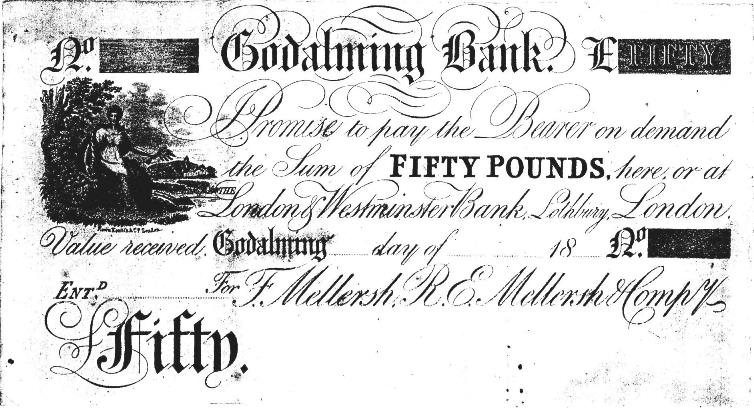 No. Godalming Bank. £FIFTY
I Promise to pay the Bearer on demand
the Sum of FIFTY POUNDS, here, or at
THE London & Westminster Bank, Lothbury, London.
Value received, Godalming day of 18 No.
For F. Mellersh, R. E. Mellersh & Compy.
ENT.D
£Fifty.